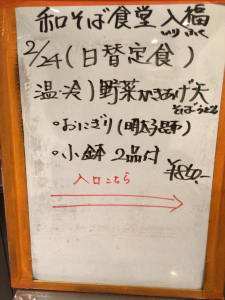 和そば食堂 入魚
2/24(日替定食)
温・冷)野菜かきあげ天
そば・うどん
・おにぎり(明太子)
・小鉢 2品付
¥860-
入口こちら